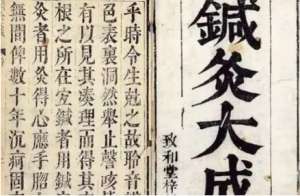 鍼灸大成
致和堂梓
平時令生尅之故聆音
色表裏洞然舉止聲咳
有以見其湊理而得其
根之所在宜鍼者用鍼
灸者用灸得心應手膕
無間俾數十年沉疴固